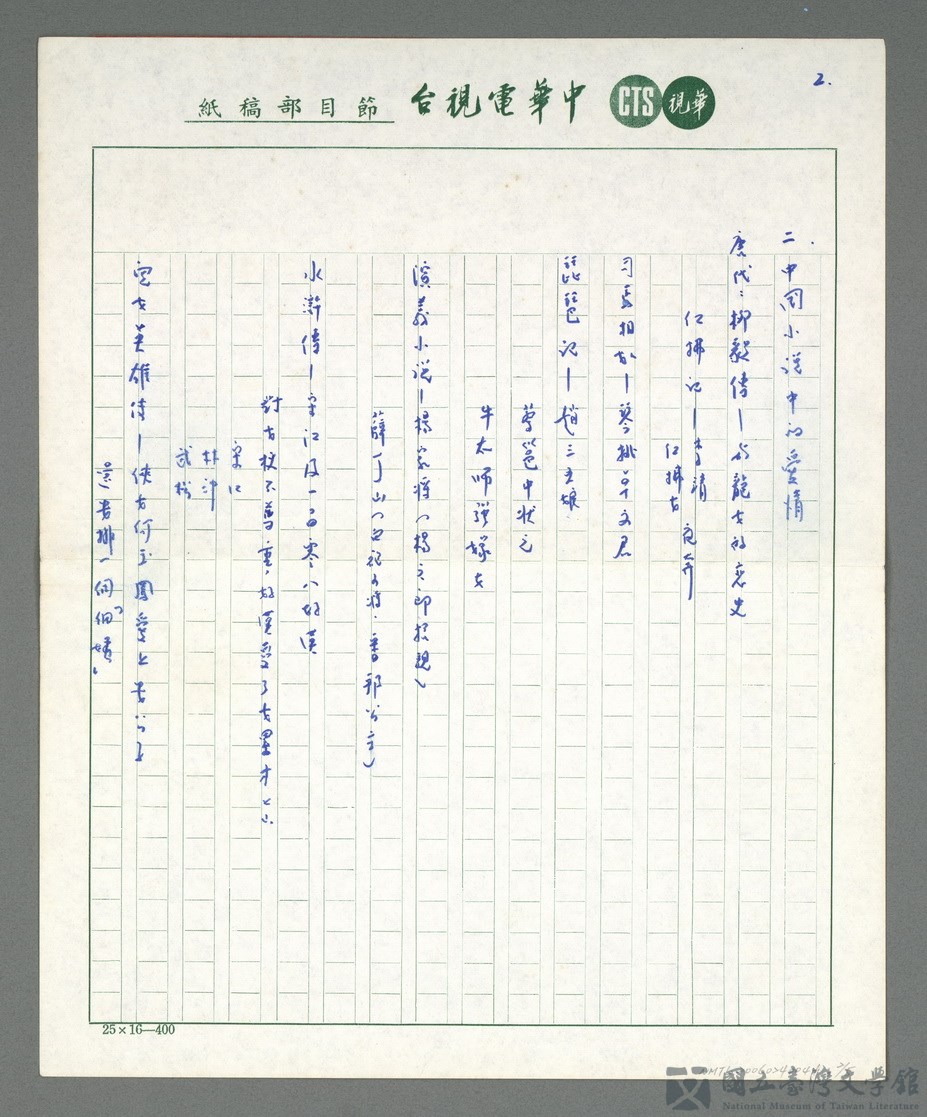 2.
中華電視台節目部稿紙
CTS 華視
二. 中國小說中的愛情
唐代:柳毅傳—與龍女的戀史
紅拂記—李靖
紅拂女 夜奔
司馬相如—琴挑卓文君
琵琶記—趙三五娘
蔡邕中狀元
牛太師強嫁女
演義小說—楊家將(楊六郎招親)
薛丁山(西涼女將.番邦公主)
水滸傳—宋江及一百零八好漢
對女权不尊重,好漢愛了女
宋江
林冲
武松
兒女英雄傳—俠女何玉鳳愛上安公子
還安排一個
25×16—400
國立臺灣文學館
National Museum of Taiwan Literature